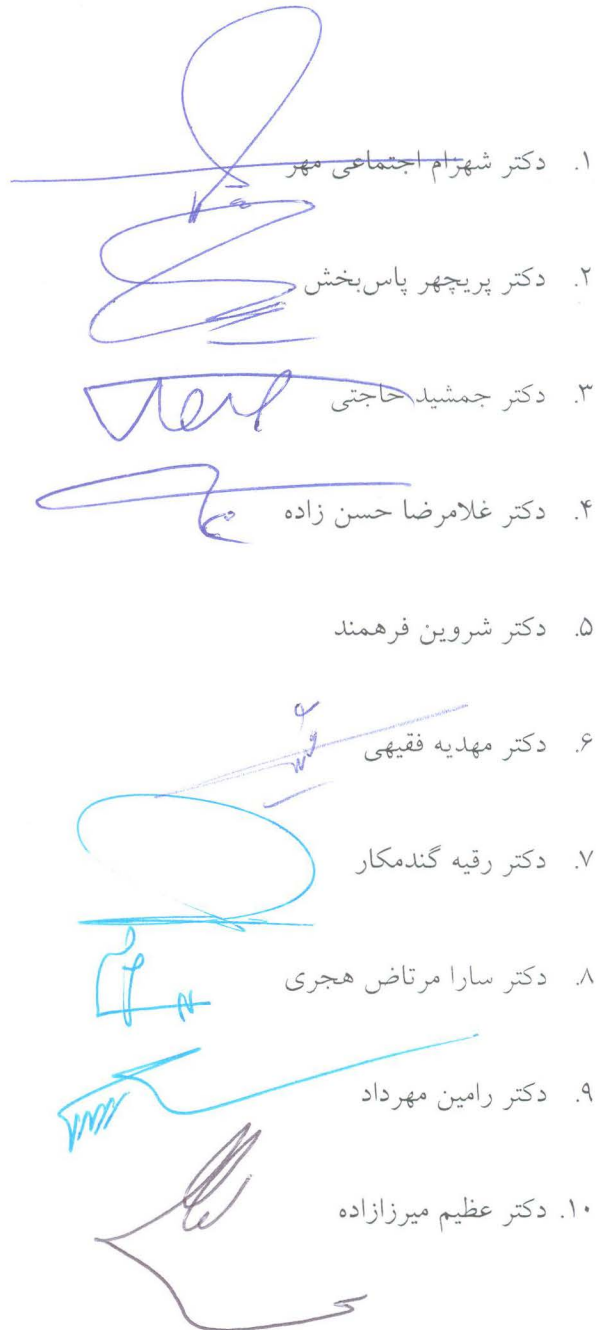 ۱. دکتر شهرام اجتماعی مهر
۲. دکتر پریچهر پاس‌بخش
۳. دکتر جمشید حاجتی
۴. دکتر غلامرضا حسن زاده
۵. دکتر شروین فرهمند
۶. دکتر مهدیه فقیهی
۷. دکتر رقیه گندمکار
۸. دکتر سارا مرتاض هجری
۹. دکتر رامین مهرداد
۱۰. دکتر عظیم میرزازاده